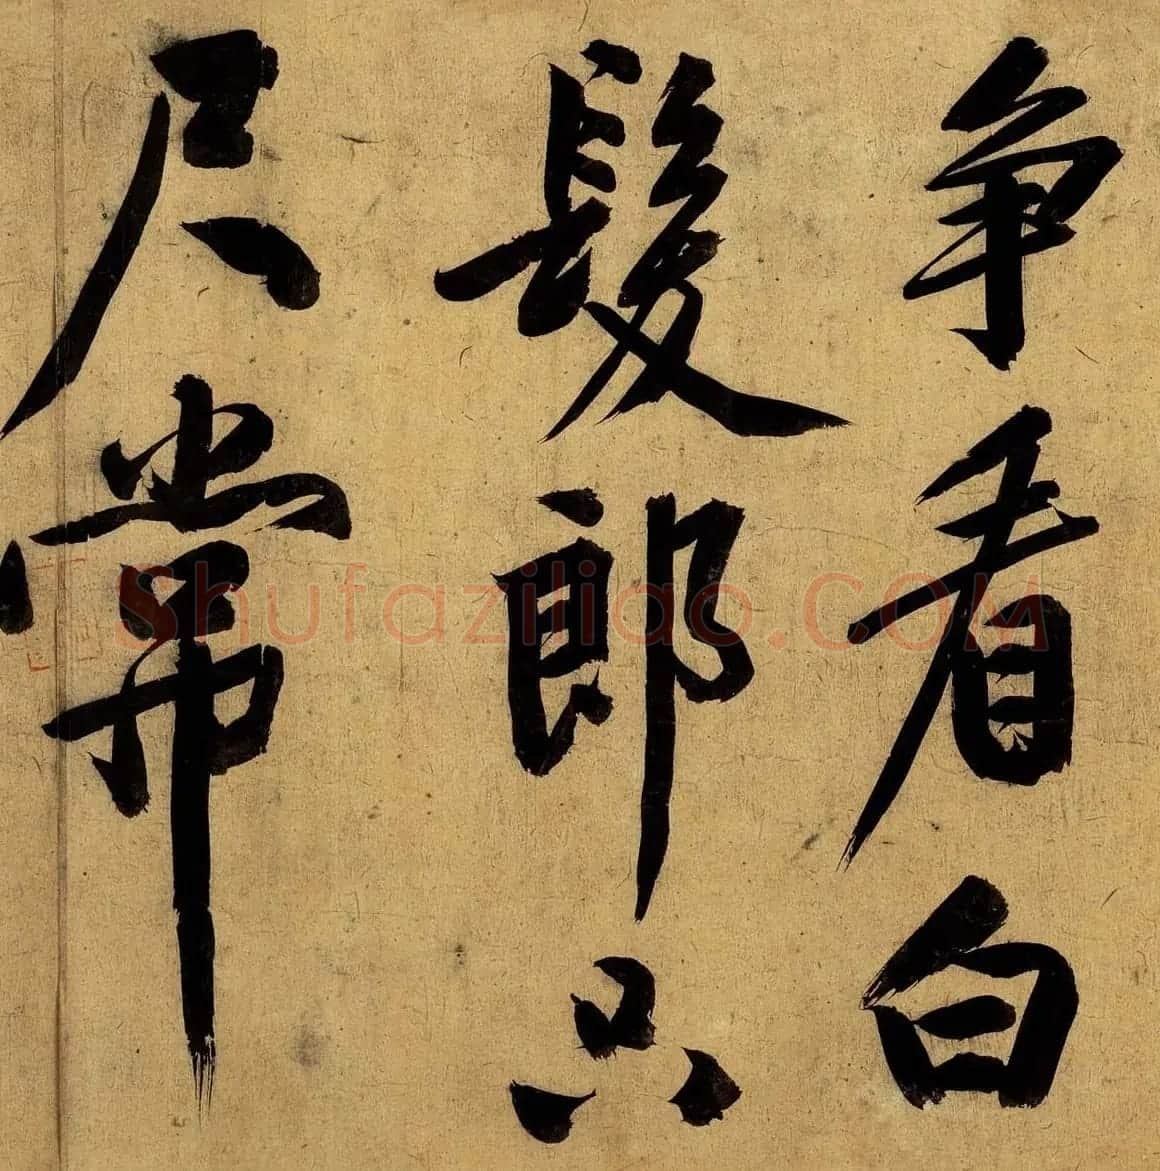 争看白
髮郎只
尺常
Shufaziliao.COM